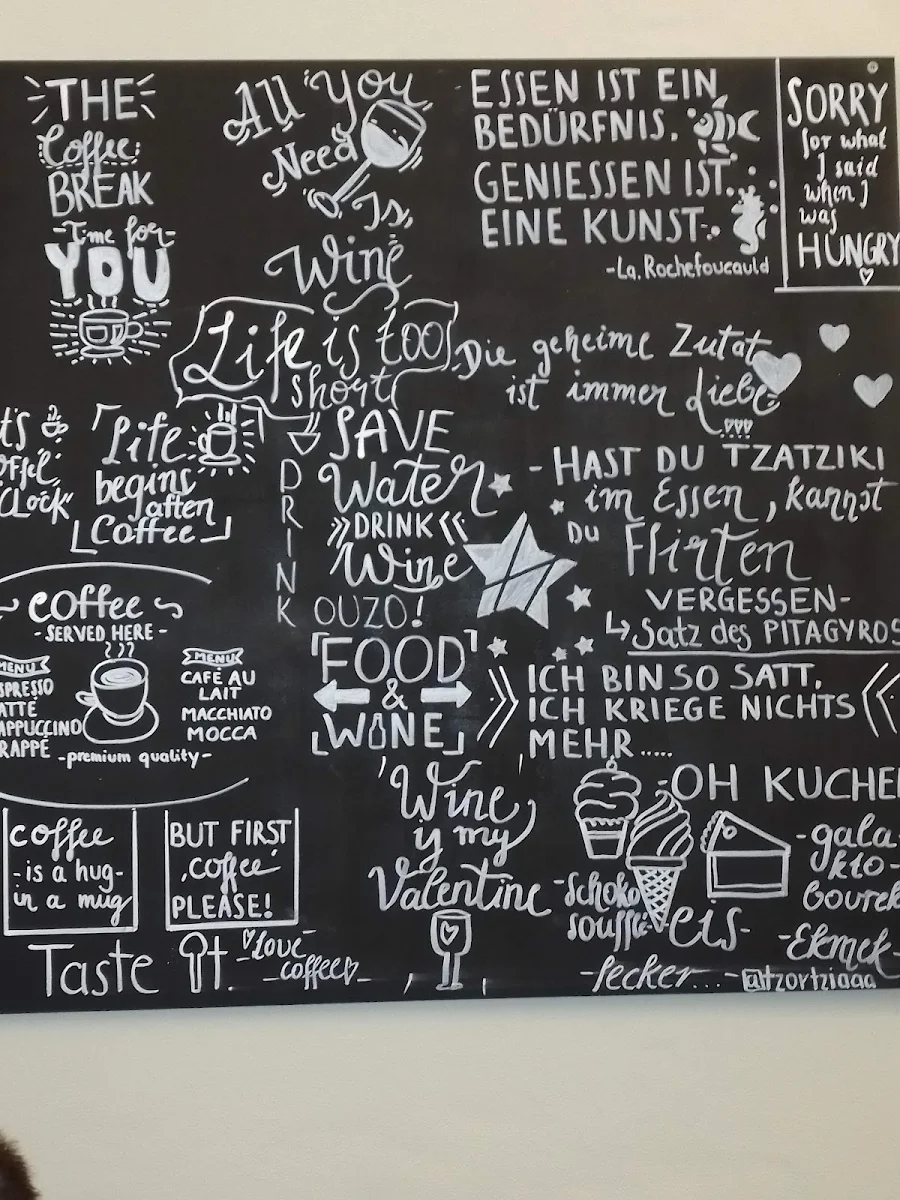 THE
Coffee
BREAK
-Time for-
YOU
All You
Need
Is,
Wine
ESSEN IST EIN
BEDÜRFNIS.
GENIESSEN IST..
EINE KUNST.
-La. Rochefoucauld
SORRY
for what
I said
when I
was
HUNGRY
Life is too
short
Die geheime Zutat
ist immer Liebe
!!!
"Life
begins
aften
Coffee
CLOCK"
DRINK
SAVE
Water
»DRINK«
Wine
OUZO!
- HAST DU TZATZIKI
im Essen, kannst
Du Flirten
VERGESSEN-
↳Satz des PITAGYROS
coffee
-SERVED HERE-
MENU
SPRESSO
ATTE
APPUCCINO
RAPPÉ
MENU
CAFÉ AU
LAIT
MACCHIATO
MOCCA
-premium quality-
FOOD
&
WINE
» ICH BIN SO SATT, «
ICH KRIEGE NICHTS
MEHR.....
-OH KUCHE
-gala
kto-
bourek
-Ekmek-
-Schoko
soufflé-
eis-
-lecker...-
@tzortziaaa
Wine
y my
Valentine
coffee
-is a hug-
in a mug
BUT FIRST
,coffee
PLEASE!
Taste it.
-love-
-coffee-